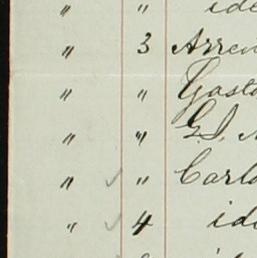 " " ide
" 3 Arren
" " Gasto
" " G. J.
" " Carlo
" 4 ide